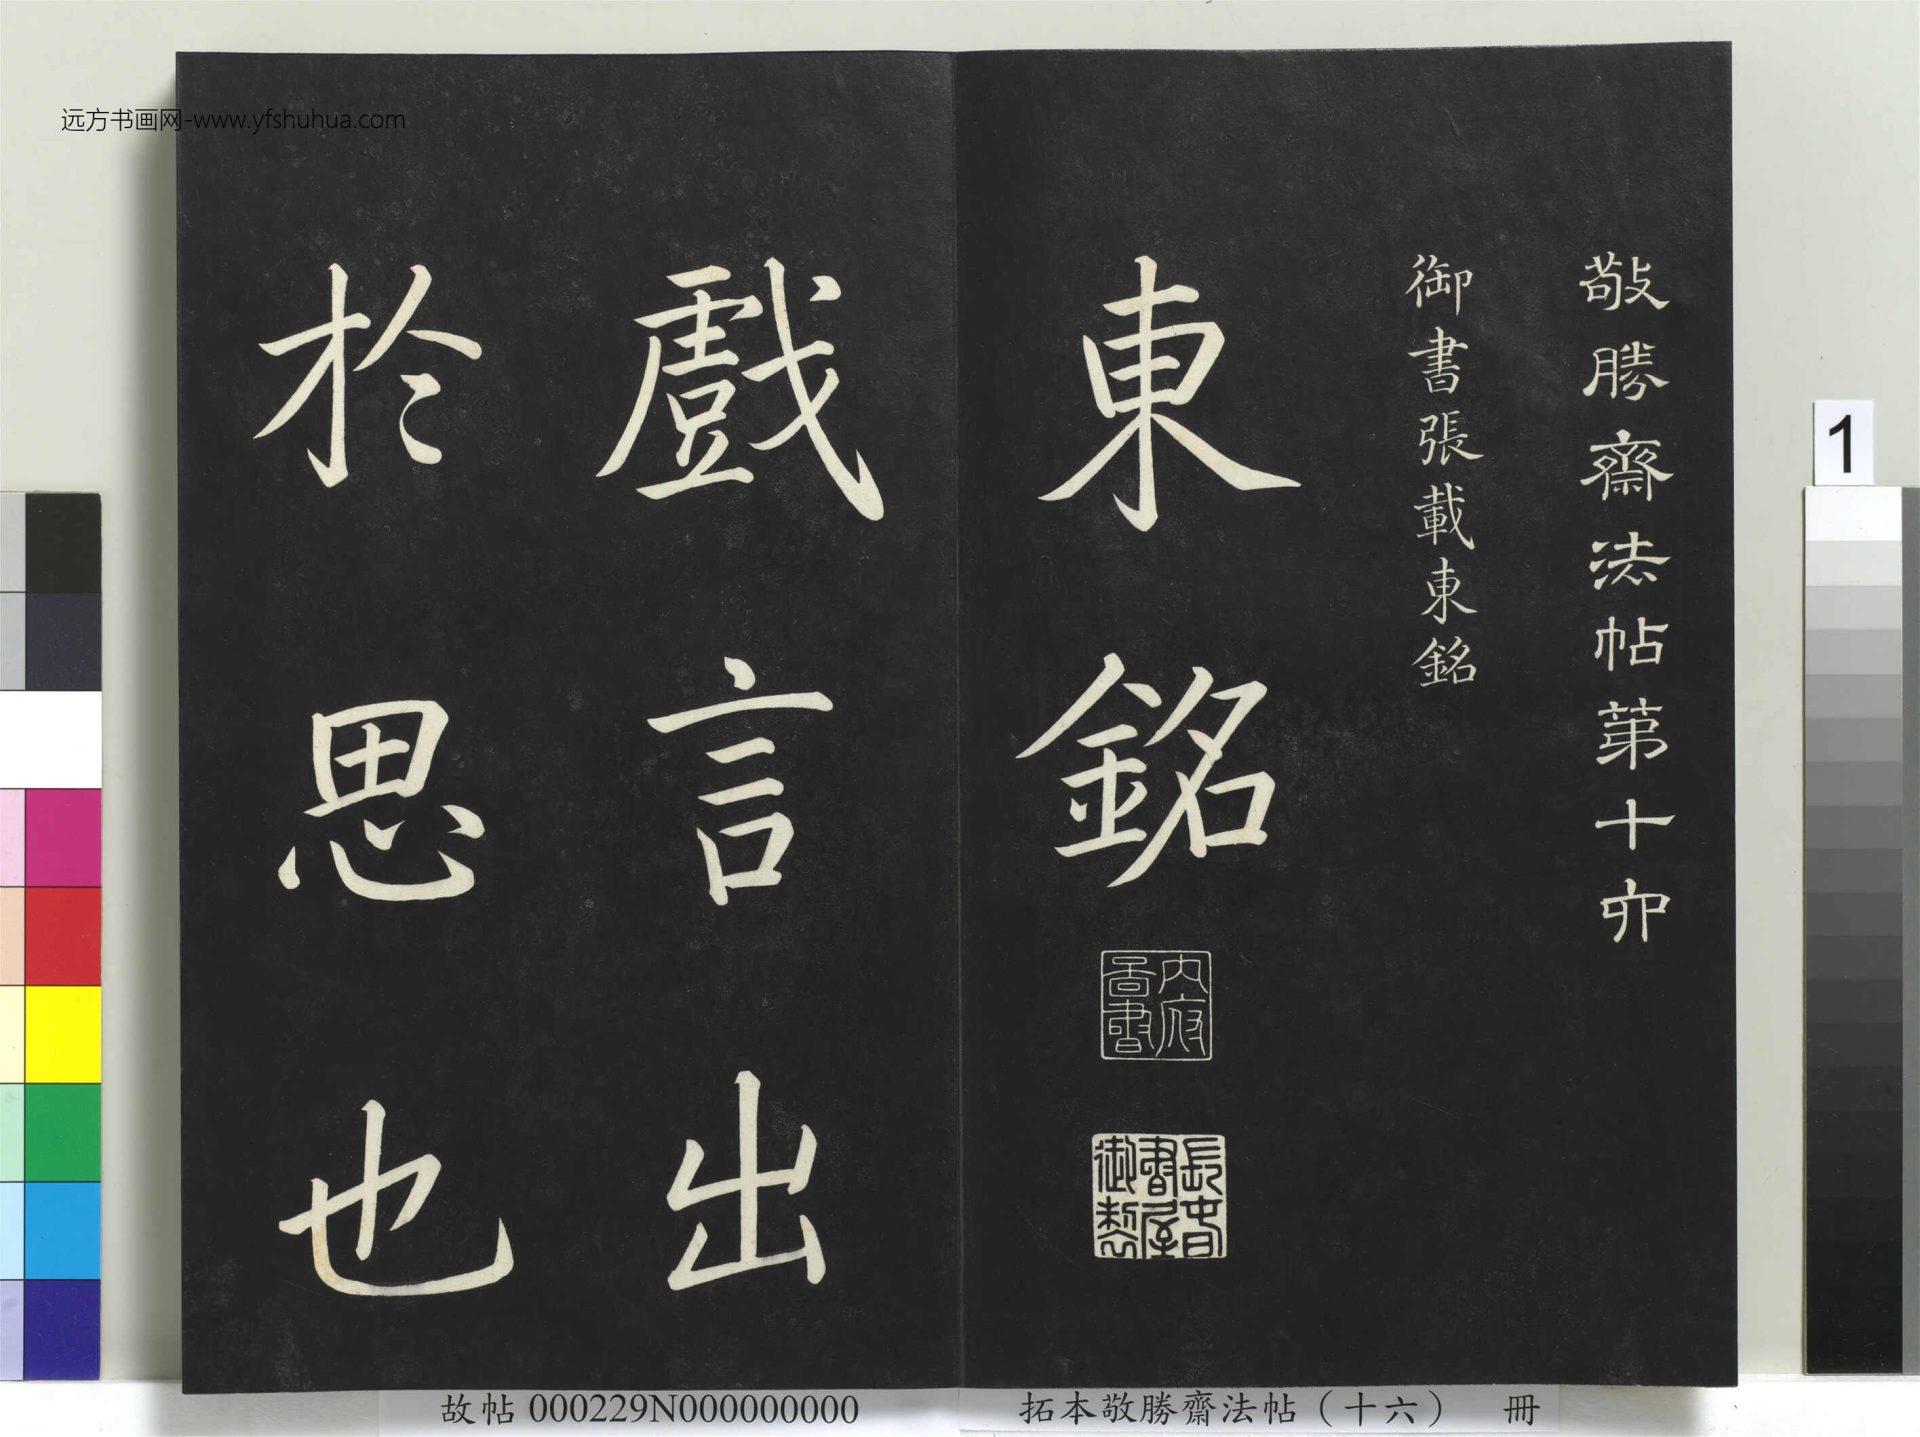 敬勝齋法帖第十六
御書張載東銘
東銘
內府
書
長春
書屋
御
戲言出
於思也
远方书画网-www.yfshuhua.com
1
故帖 000229N000000000
拓本敬勝齋法帖（十六） 冊